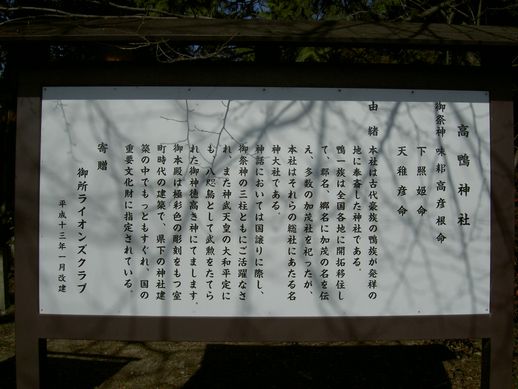 高鴨神社
御祭神 味耜高彦根命
下照姫命
天稚彦命
由緒 本社は古代豪族の鴨族が発祥の
地に奉斎した神社である。
鴨一族は全国各地に開拓移住し
て、郡名、郷名に加茂の名を伝
え、多数の加茂社を祀ったが、
本社はそれらの総社にあたる名
神大社である。
神話においては国譲りに際し、
御祭神の三柱ともにご活躍なさ
れ、また神武天皇の大和平定に
も、八咫烏として武勲をたてら
れた御神徳高き神にてまします。
御本殿は極彩色の彫刻をもつ室
町時代の建築で、県下の神社建
築の中でもっともすぐれ、国の
重要文化財に指定されている。
寄贈
御所ライオンズクラブ
平成十三年一月改建